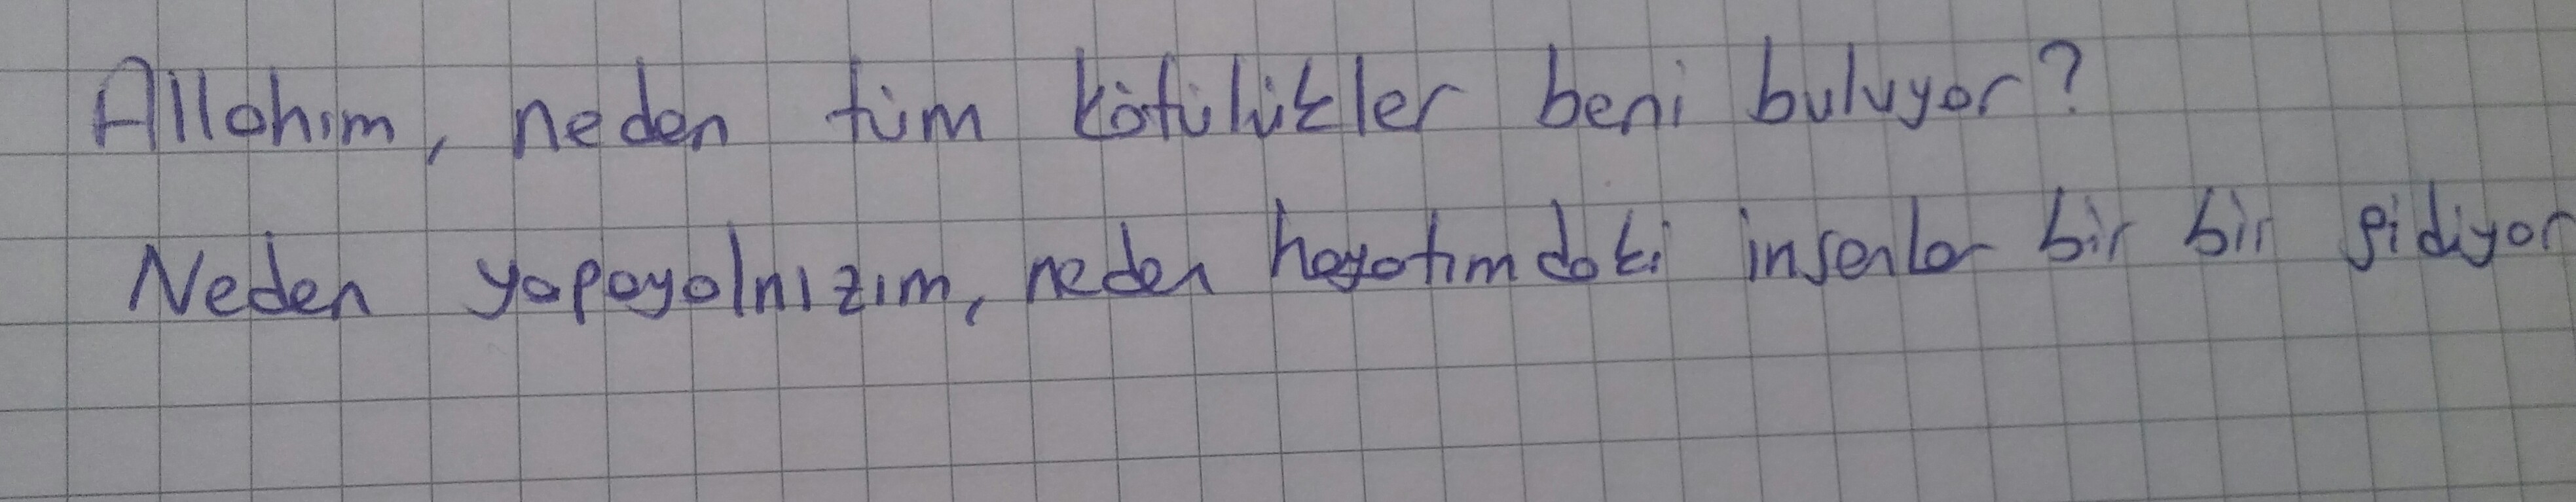 Allahım, neden tüm kötülükler beni buluyor?
Neden yapayalnızım, neden hayatımdaki insanlar bir bir gidiyor